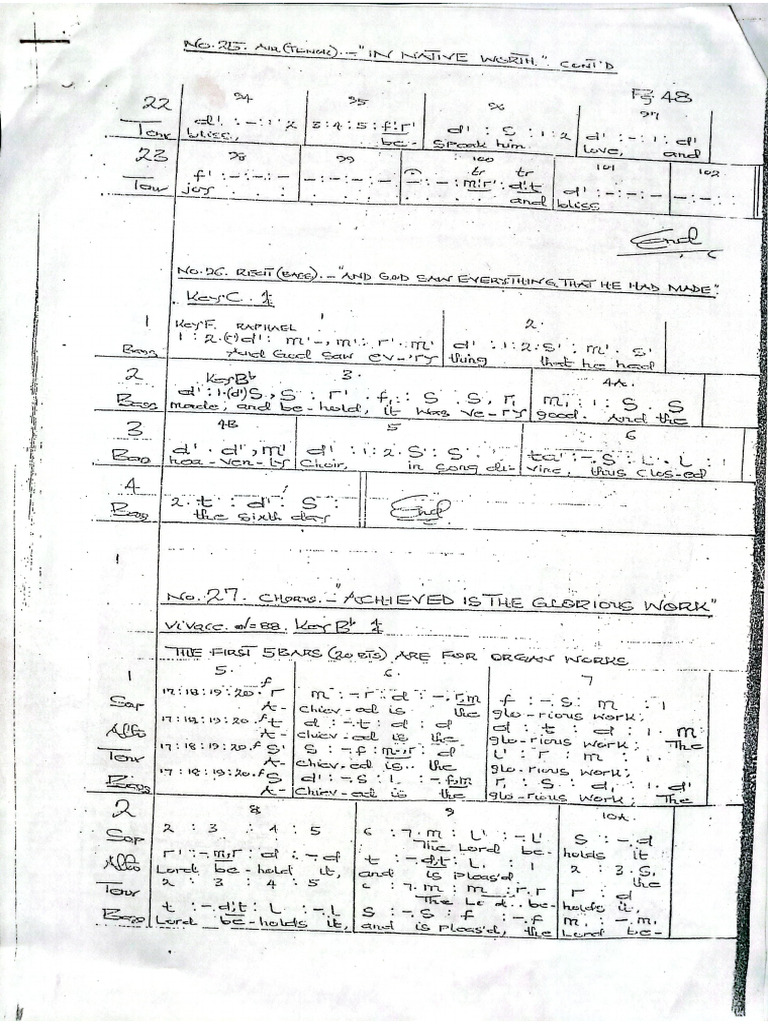 No. 25. AIR (TENOR). - "IN NATIVE WORTH." CONT'D
Pg 48
94 95 96 97
22 d' : - : 1 : 2 3 : 4 : 5 : f' : r' d' : S : 1 : 2 d' : - : 1 : d'
Tenr bliss, be- Speak him. love, and
23 98 99 100 101 102
f' : - : - : - - : - : - : - - : - : m' r' : d' t d' : - : - : - - : - :
tr tr
Tenr joy and bliss
End
No. 26. RECIT (BASS). - "AND GOD SAW EVERYTHING THAT HE HAD MADE."
Key C. 4
1 2.
Key F. RAPHAEL
1 1 : 2 . (t') d' : m' - , m' : r' . m' d' : 1 : 2 : S' : m' . S'
Bass And God saw ev-'ry thing that he had
2 Key Bb 3. 4A.
d' : 1 . (d') S , S : r' . f , : S . S , r , m , : 1 : S . S
Bass made; and be-hold, it was ve-ry good. And the
3 4B 5 6
d' . d' , m' d' : 1 : 2 . S : S ta' : - . S : L . L : 1
Bass hea-ven-ly Choir, in song di- vine, thus clos-ed
4 2 . t : d' : S :
Bass the sixth day End
1
No. 27. CHORUS. - "ACHIEVED IS THE GLORIOUS WORK"
Vivace. d/= 88. Key Bb 4
THE FIRST 5 BARS (20 BTS) ARE FOR ORGAN WORKS
1 5. 6. 7
Sop 17 : 18 : 19 : 20 . f r m : - r : d : - , r , m f : - . S : m : 1
A- chiev-ed is the glo-rious work;
Alto 17 : 18 : 19 : 20 . f t d : - . t : d : d d : t : d : 1 . m
A- chiev-ed is the glo-rious work; The
Tenr 17 : 18 : 19 : 20 . f S' S : - . f : m , r : d L' : r : m : 1
A- chiev-ed is the glo-rious work;
Bass 17 : 18 : 19 : 20 . f S d' : - . S : L : - . f , m r , : S : d , : 1 . d'
A- chiev-ed is the glo-rious work; The
2 8 9 10A.
Sop 2 : 3 : 4 : 5 6 : 7 . m : L' : - . L' S : - . d
The Lord be- holds it
Alto r' : - . m , r : d : - . d t : - . d , t : L , : 1 2 : 3 . S ,
Lord be-hold it, and is pleas'd the
Tenr 2 : 3 : 4 : 5 6 : 7 . m : m : - r . r r : d
The Lo d be- holds it,
Bass t : - . d , t : L : - . L S : - . S : f : - . f m , : - . m ,
Lord be-holds it, and is pleas'd, the Lord be-